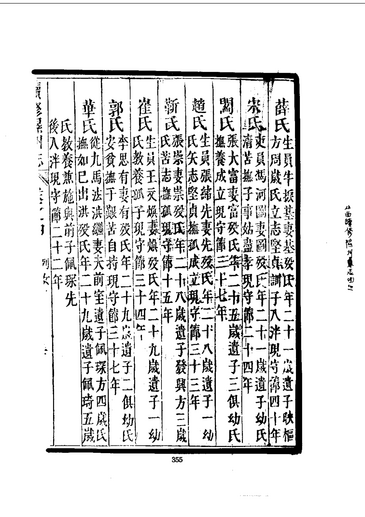 薛氏生員牛振基妻基歿氏年二十一歲遺子映樞
方周歲氏立志堅貞訓子入泮現守節四十年
宋氏吏員馮河圖妻圖歿氏年二十一歲遺子一幼
清苦撫子事姑盡孝現守節二十四年
閻氏張大富妻富歿氏年二十五歲遺子三俱幼氏
撫養成立現守節三十七年
趙氏生員張緒先妻先歿氏年二十八歲遺子一幼
氏矢志堅貞撫孤成立現守節三十三年
靳氏張崇妻崇歿氏年二十八歲遺子發興方三歲
氏苦志撫孤現守節十五年
崔氏生員王文煥妻煥歿氏年二十九歲遺子一幼
氏教養孤子現守節三十四年
郭氏李思有妻有歿氏年二十九歲遺子二俱幼氏
安貧撫子艱苦自持現守節三十七年
華氏從九馬法洪繼妻夫前室遺子佩琛方四歲氏
撫如已出洪歿氏年二十九歲遺子佩琦五歲
氏教養兼施與前子佩琛先
後入泮現守節二十二年
列女
355